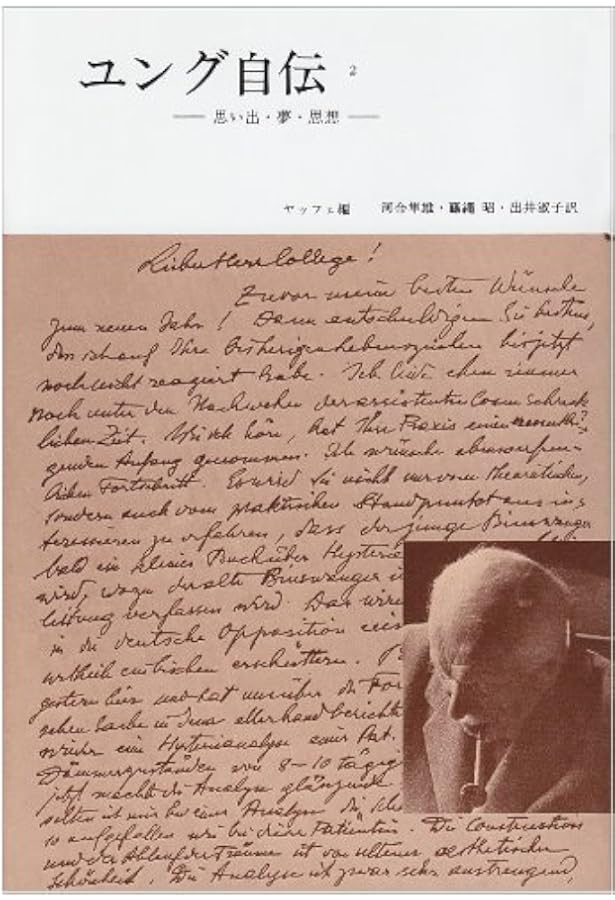 ユング自伝 2
── 思い出・夢・思想 ──
ヤッフェ編 河合隼雄・藤繩 昭・出井淑子訳
Lieber Herr College!
Zuvor meine besten Wünsche
zum neuen Jahr! Dann entschuldigen Sie bestens,
dass ich auf Ihre bisherigen Lebenszeichen bis jetzt
noch nicht reagiert habe. Ich leide eben immer
noch unter den Nachwehen der assistentenlosen schreck
lichen Zeit. Wie ich höre, hat Ihre Praxis einen
genden Anfang genommen. Ich wünsche
lichen Fortschritt. Es wird Sie nicht nur vom theoretischen,
sondern auch vom praktischen Standpunkt aus in-
teressieren zu erfahren, dass der junge Binswanger
bald ein kleines Buch über Hysterie
wird, wozu der alte Binswanger
leitung verfassen wird. Das wird
in die deutsche Opposition
erschüttern.
gestern hier und hat uns über die
schen Sache in Jena allerhand berichtet
wieder eine Hysterieanalyse einer Pat.
Dämmerzuständen von 8-10 tägig
jetzt macht die Analyse glänzende
selten ist mir bei einer Analyse die
so aufgefallen wie bei dieser Patientin. Die Construction
und der Ablauf der Träume ist von seltener aesthetischer
Schönheit. Die Analyse ist zwar sehr anstrengend,